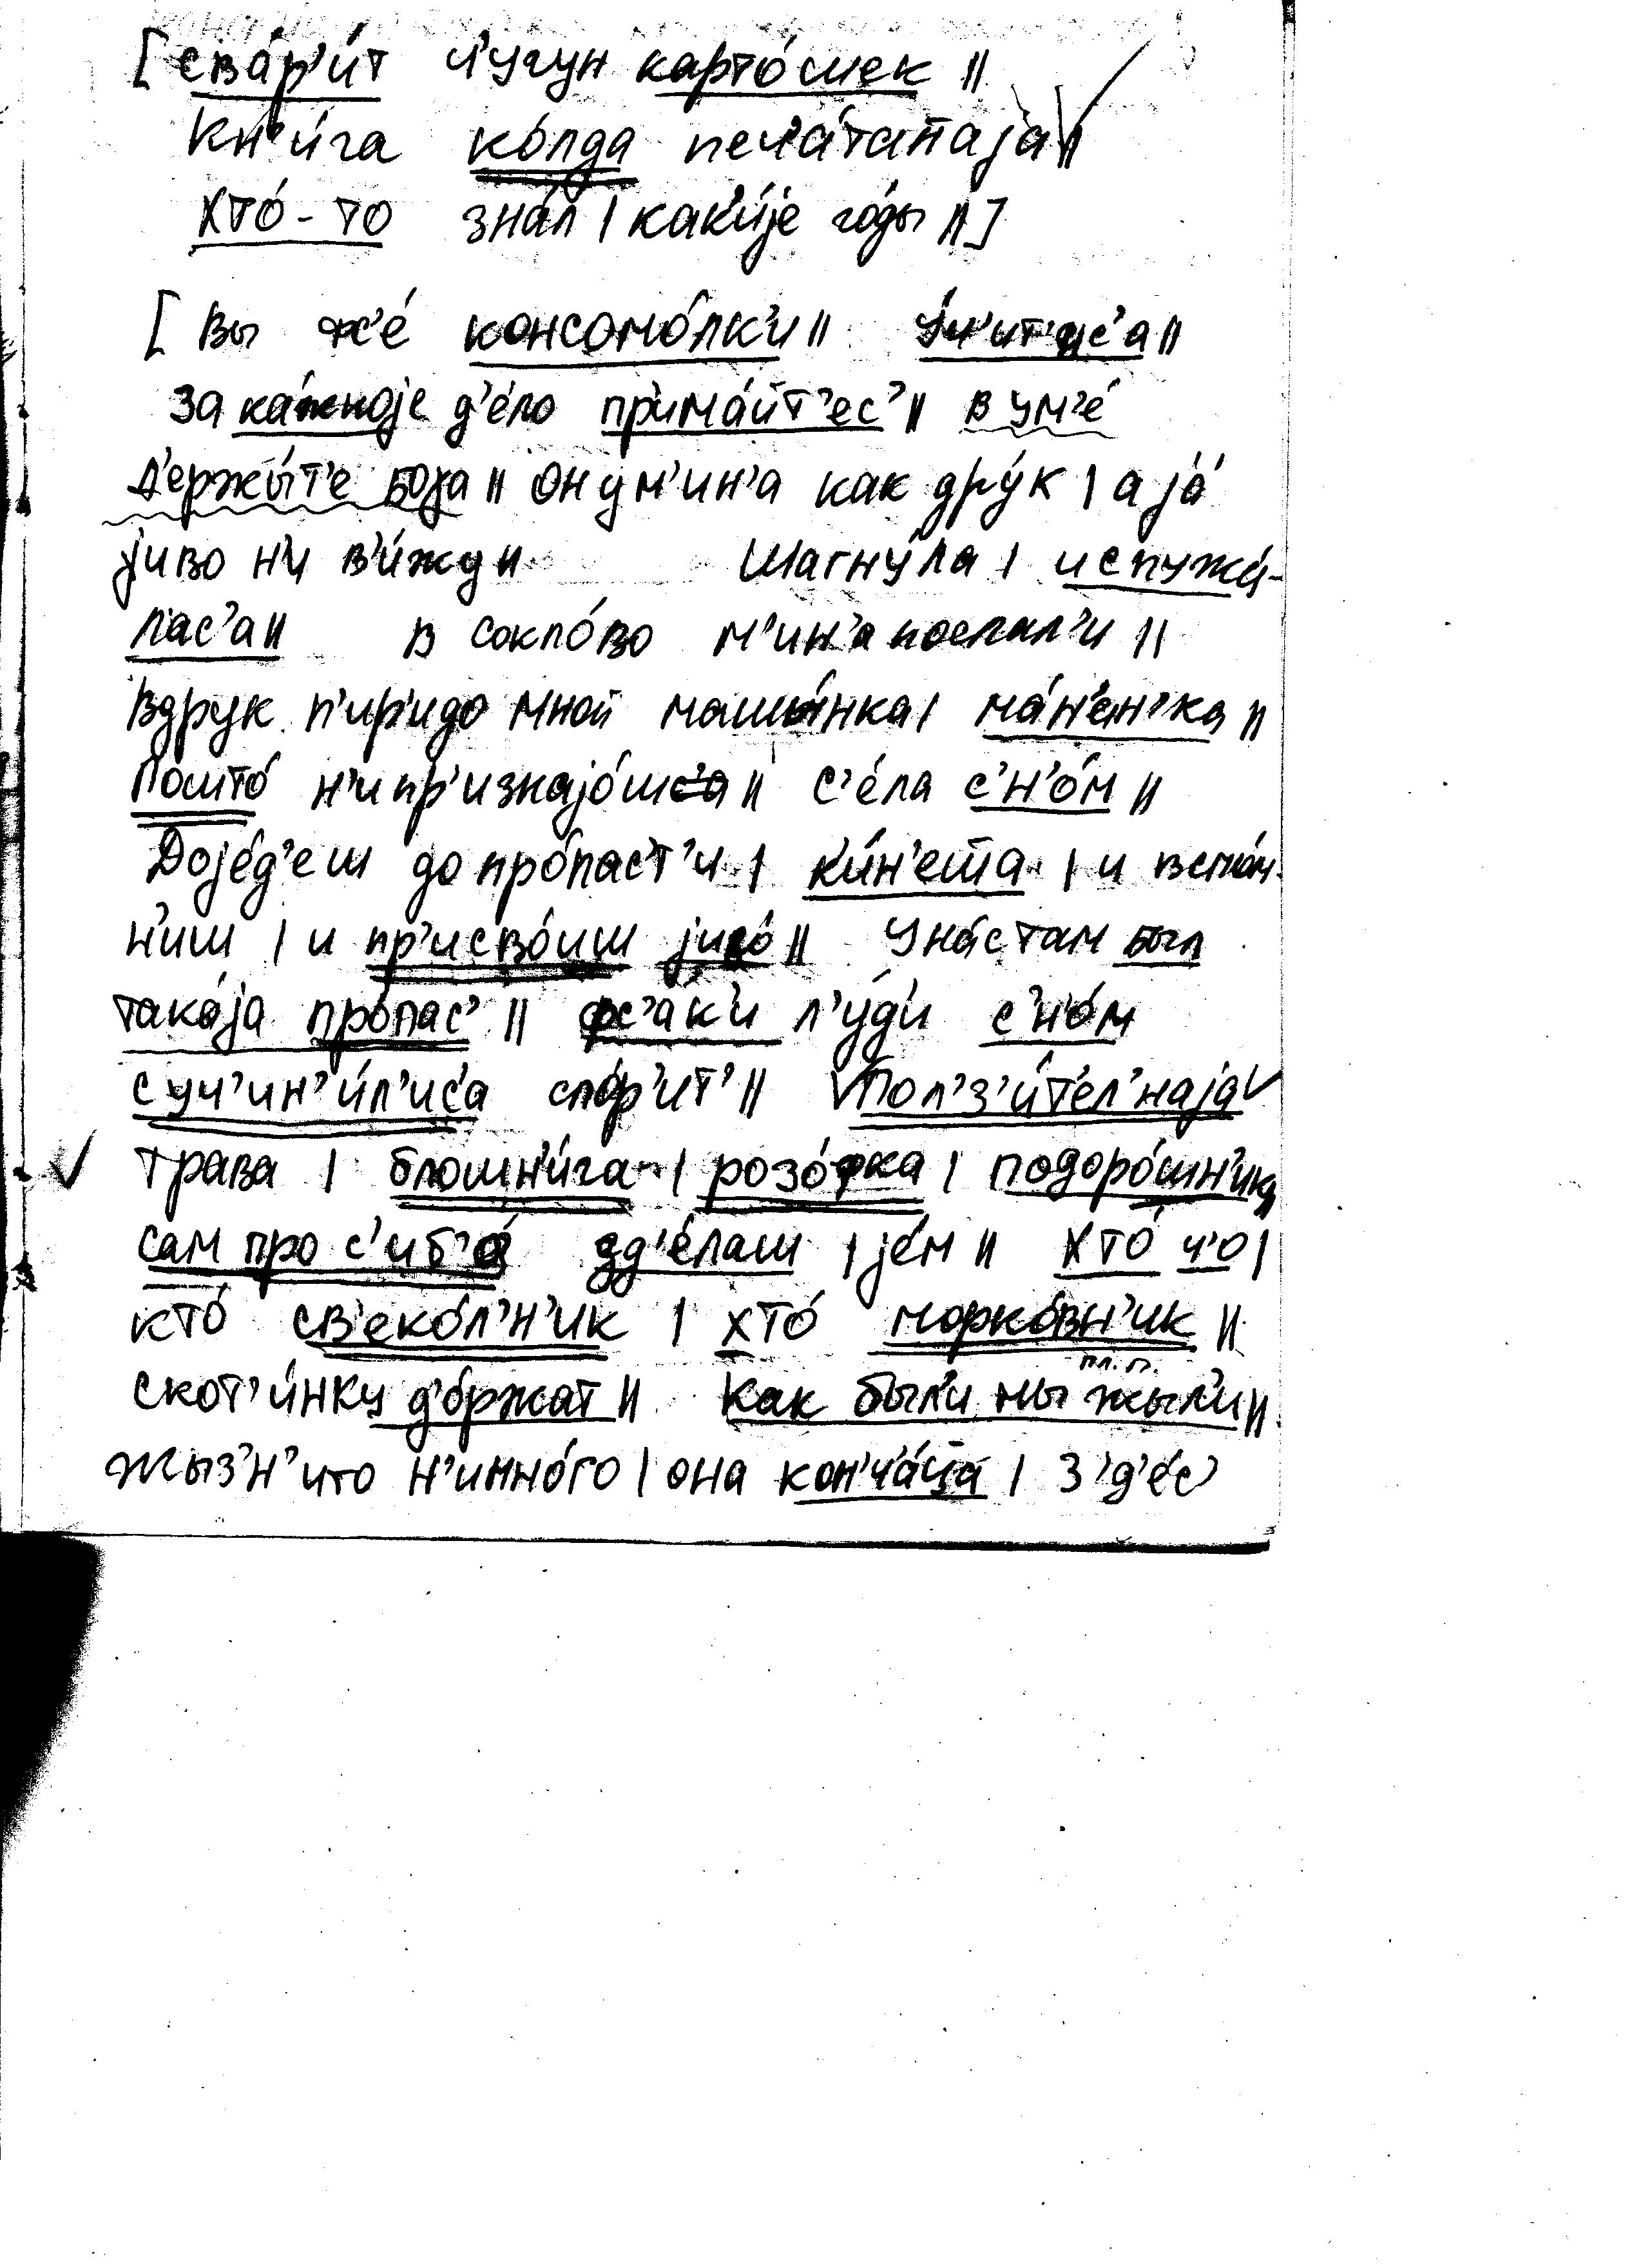 [ сва́р'и́т ч'угун карто́шек ||
Кн'и́га ко́лда печа́татаја ||
хто́-то зна́л | как'и́је го́ды || ]
[ Вы ж'е́ консомо́лк'и || у́ч'ит'ис'а ||
за ка́жноје д'е́ло прима́йт'ес' || в ум'е́
д'ержы́т'е бога || он у м'ин'а как дру́к | а ја́
јиво н'и в'и́жу || Шагну́ла | испужа́-
лас'а || в сокло́во м'ин'а послал'и ||
Вдрук п'ир'идо мной машы́нка | ма́н'ен'ка ||
пошто́ н'и пр'изнајо́шс'а || с'е́ла с'н'о́м ||
Доје́д'еш до про́паст'и | ки́н'еша | и вспо́м-
н'иш | и пр'исво́иш јиго́ || У на́с там был
така́ја про́пас' || фс'а́к'и л'у́д'и с'н'о́м
суч'ин'и́л'ис'а спо́р'ит' || Пол'з'и́т'ел'наја
трава | блошн'и́га | розо́фка | подоро́шн'ику
сам про с'иб'а́ зд'е́лаш | је́м || хто́ ч'о |
кто́ св'еко́л'н'ик | хто́ морко́вн'ик ||
пл. п.
скот'и́нку д'о́ржат || как был'и мы жыл'и ||
Жыз'н'и то н'имно́го | она кон'ч'а́ца | з'д'е́с'